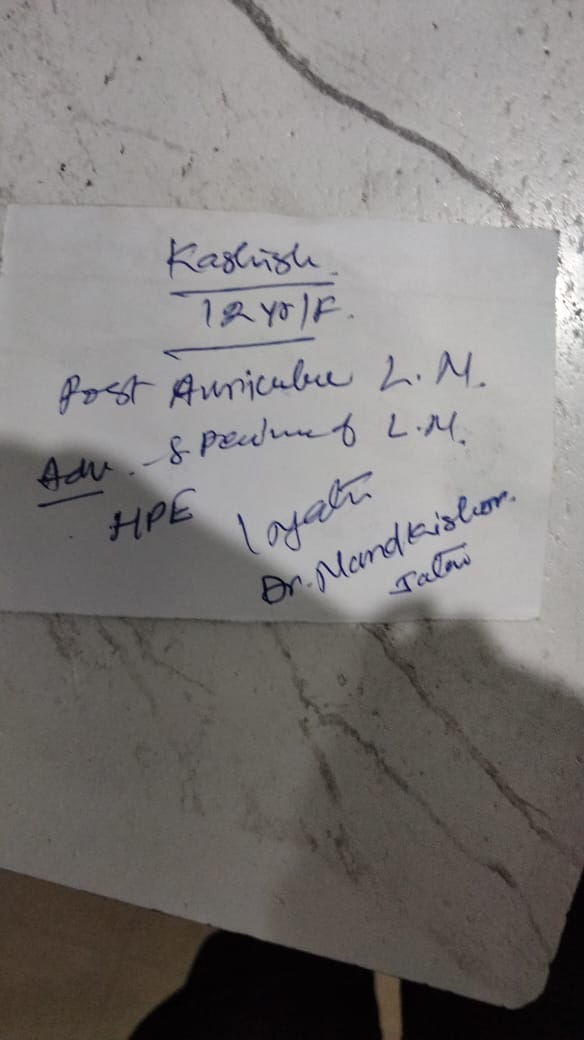 Kashish
12 yr/F.
Post Auricular L.M.
Adv. - Specimen of L.M.
HPE
Dr. Nandkishor
Jatav